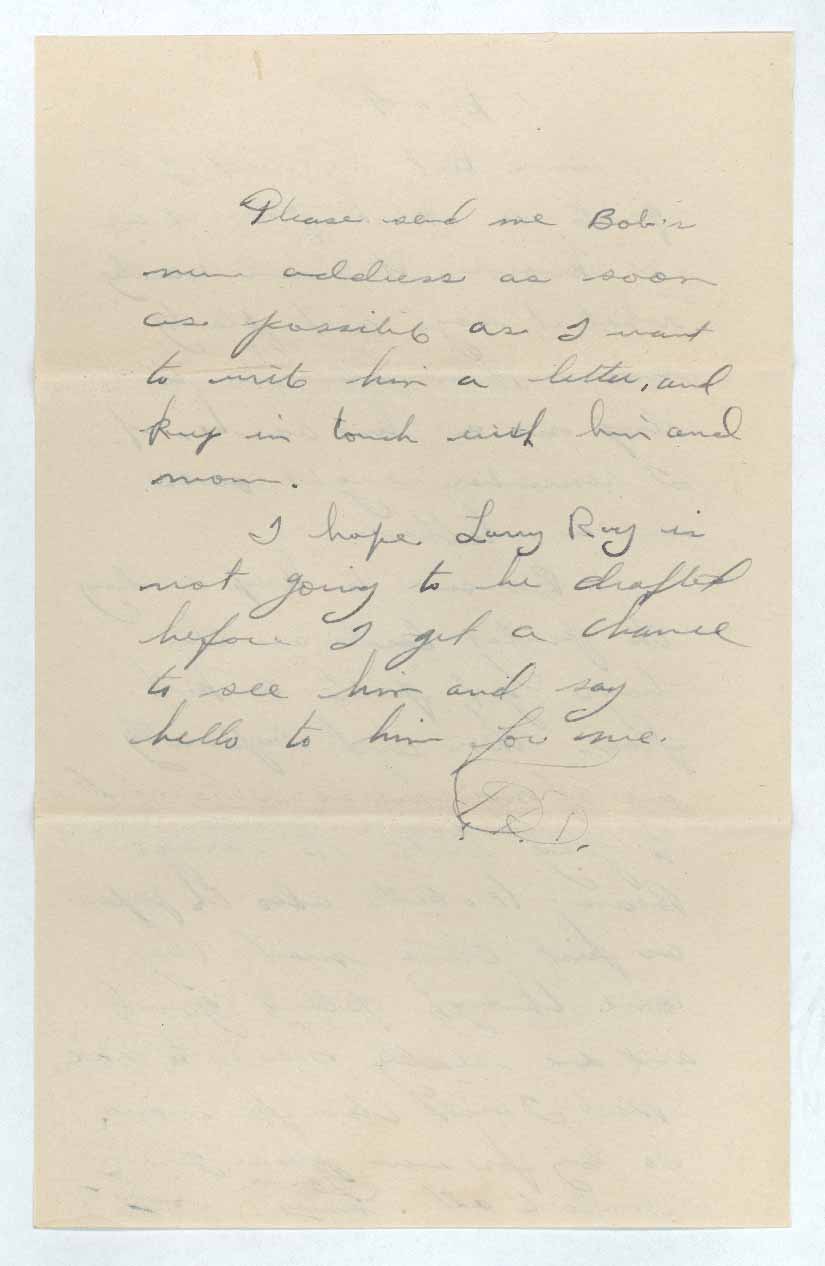 Please send me Bob's
new address as soon
as possible as I want
to write him a letter, and
keep in touch with him and
mom.
I hope Larry Ray is
not going to be drafted
before I get a chance
to see him and say
hello to him for me.